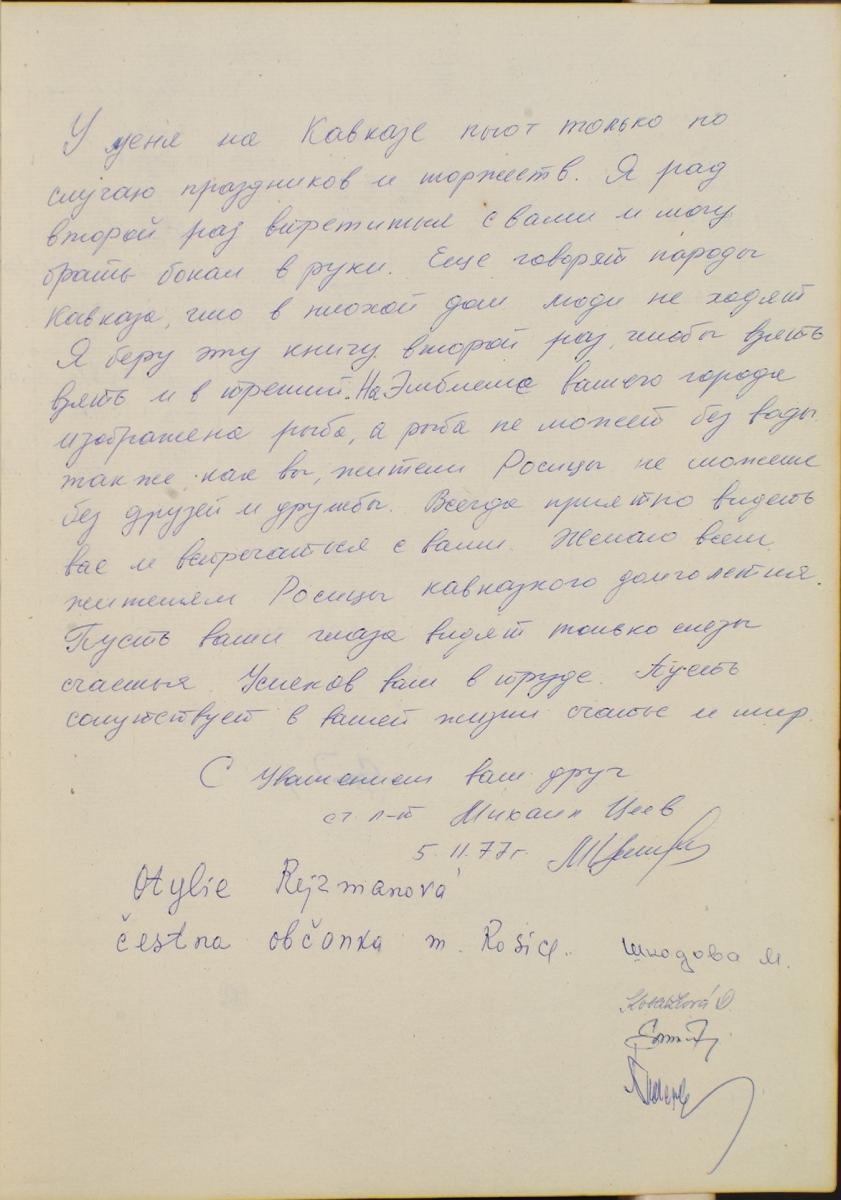 У меня на Кавказе пьют только по
случаю праздников и торжеств. Я рад
второй раз встретиться с вами и могу
брать бокал в руки. Еще говорят народы
Кавказа, что в плохой дом люди не ходят
Я беру эту книгу второй раз, чтобы взять
взять и в третий. На Эмблеме вашего города
изображена рыба, а рыба не может без воды
так же как вы, жители Росицы не можете
без друзей и дружбы. Всегда приятно видеть
вас и встречаться с вами. Желаю всем
жителям Росицы кавказкого долголетия.
Пусть ваши глаза видят только слезы
счастья. Успехов вам в труде. Пусть
сопутствует в вашей жизни счастье и мир.
С Уважением ваш друг
ст. л-т Михаил Цеев
5.11.77г.
Otylie Rejzmanová
čestna občanka m. Rosice.
Шкодова М.